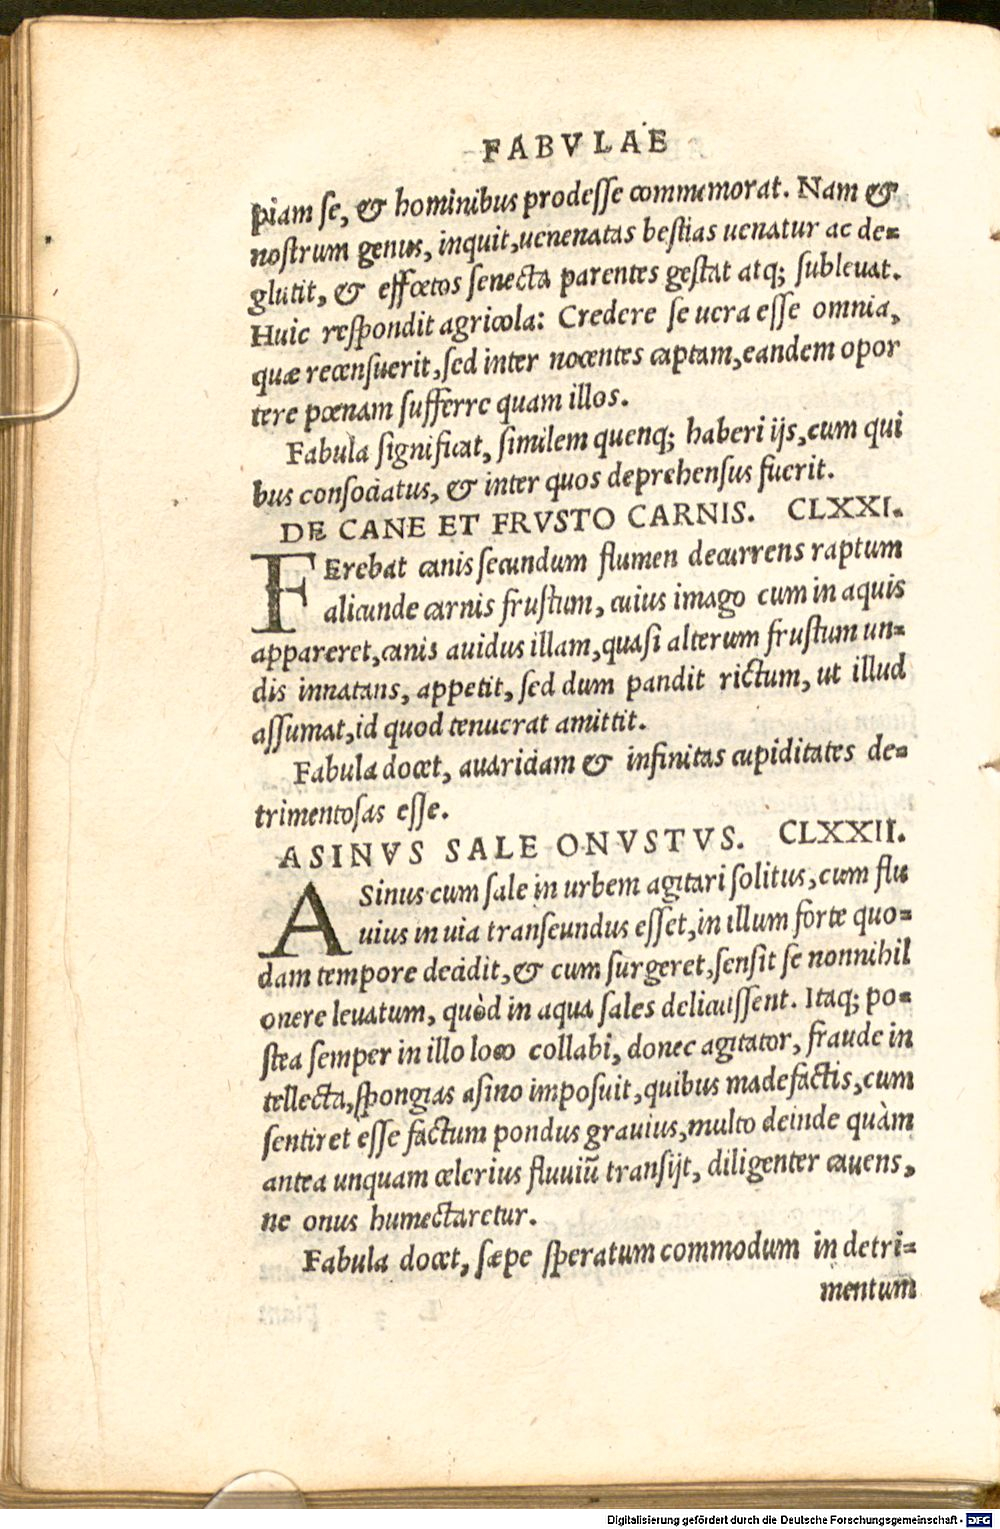 FABVLAE
piam se, & hominibus prodesse commemorat. Nam &
nostrum genus, inquit, uenenatas bestias uenatur ac de=
glutit, & effœtos senecta parentes gestat atq; subleuat.
Huic respondit agricola: Credere se uera esse omnia,
quæ recensuerit, sed inter nocentes captam, eandem opor
tere pœnam sufferre quam illos.
Fabula significat, similem quenq; haberi ijs, cum qui
bus consociatus, & inter quos deprehensus fuerit.
DE CANE ET FRVSTO CARNIS. CLXXI.
FErebat canis secundum flumen decurrens raptum
alicunde carnis frustum, cuius imago cum in aquis
appareret, canis auidus illam, quasi alterum frustum un=
dis innatans, appetit, sed dum pandit rictum, ut illud
assumat, id quod tenuerat amittit.
Fabula docet, auariciam & infinitas cupiditates de=
trimentosas esse.
ASINVS SALE ONVSTVS. CLXXII.
ASinus cum sale in urbem agitari solitus, cum flu
uius in uia transeundus esset, in illum forte quo=
dam tempore decidit, & cum surgeret, sensit se nonnihil
onere leuatum, quòd in aqua sales delicuissent. Itaq; po=
stea semper in illo loco collabi, donec agitator, fraude in
tellecta, spongias asino imposuit, quibus madefactis, cum
sentiret esse factum pondus grauius, multo deinde quàm
antea unquam celerius fluuiũ transijt, diligenter cauens,
ne onus humectaretur.
Fabula docet, sæpe speratum commodum in detri=
mentum
Digitalisierung gefördert durch die Deutsche Forschungsgemeinschaft - DFG